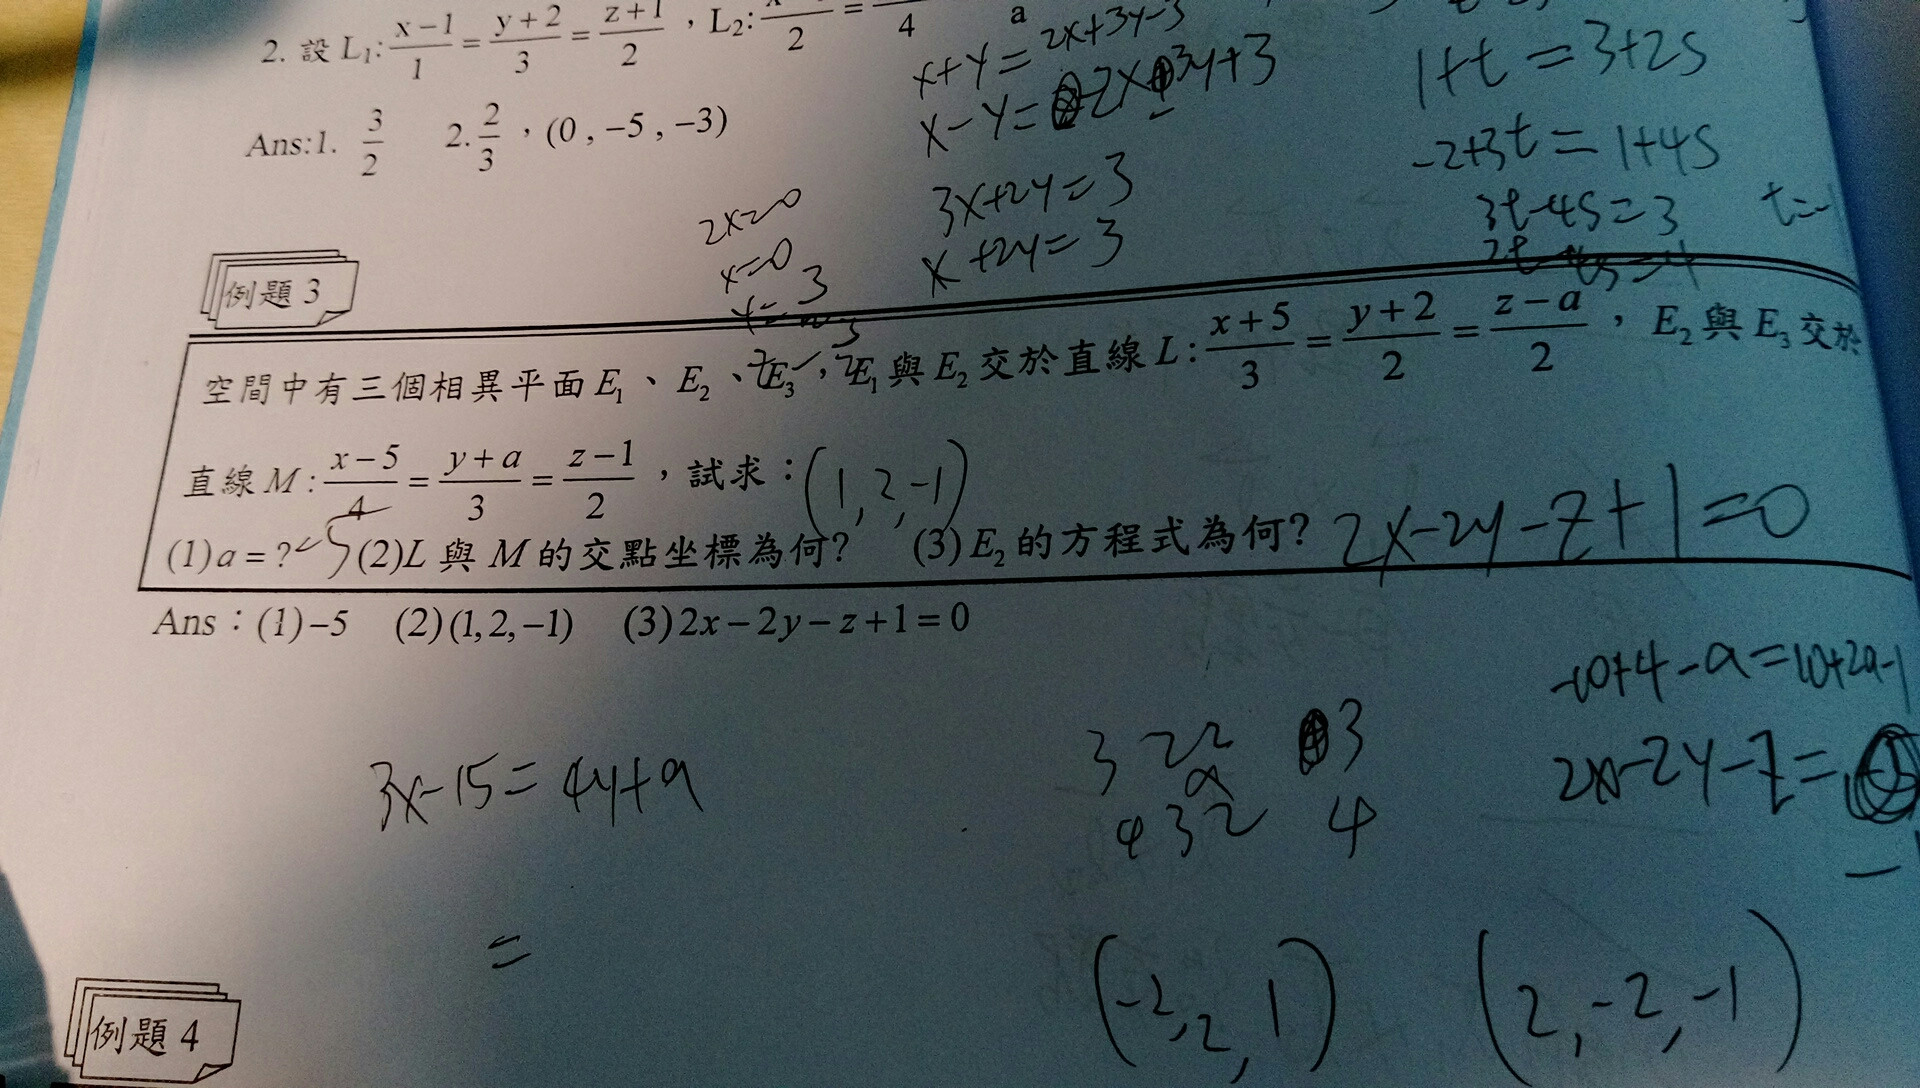 2. 設 L₁: (x−1)/1 = (y+2)/3 = (z+1)/2 , L₂: /2 = /4 a
Ans:1. 3/2 2. 2/3 , (0 , −5 , −3)
x+y = 2x+3y-3
x-y = -2x-3y+3
3x+2y=3
x+2y=3
2x=0
x=0
1+t=3+2s
-2+3t=1+4s
3t-4s=3
例題 3
空間中有三個相異平面 E₁、E₂、E₃,E₁與 E₂ 交於直線 L: (x+5)/3 = (y+2)/2 = (z−a)/2 , E₂與 E₃交於
直線 M: (x−5)/4 = (y+a)/3 = (z−1)/2 ,試求: (1,2,-1)
(1) a = ? -5 (2) L 與 M 的交點坐標為何? (3) E₂ 的方程式為何? 2x-2y-z+1=0
Ans:(1) −5 (2) (1, 2, −1) (3) 2x − 2y − z + 1 = 0
-10+4-a=10+2a-1
2x-2y-z=
3x-15=4y+a
3 2 2 3
a
4 3 2 4
=
(-2,2,1) (2,-2,-1)
例題 4